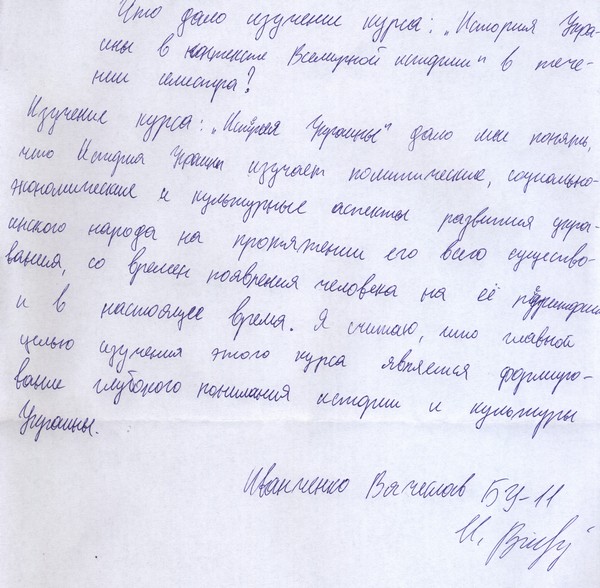 Что дало изучение курса: „История Укра-
ины в контексте Всемирной истории" в тече-
нии семестра?
Изучение курса: „История Украины" дало мне понять,
что История Украины изучает политические, социально-
экономические и культурные аспекты развития укра-
инского народа на протяжении его всего существо-
вания, со времен появления человека на её територии
и в настоящее время. Я считаю, что главной
целью изучения этого курса является формиро-
вание глубокого понимания истории и культуры
Украины.
Иванченко Вячеслав БУ-11